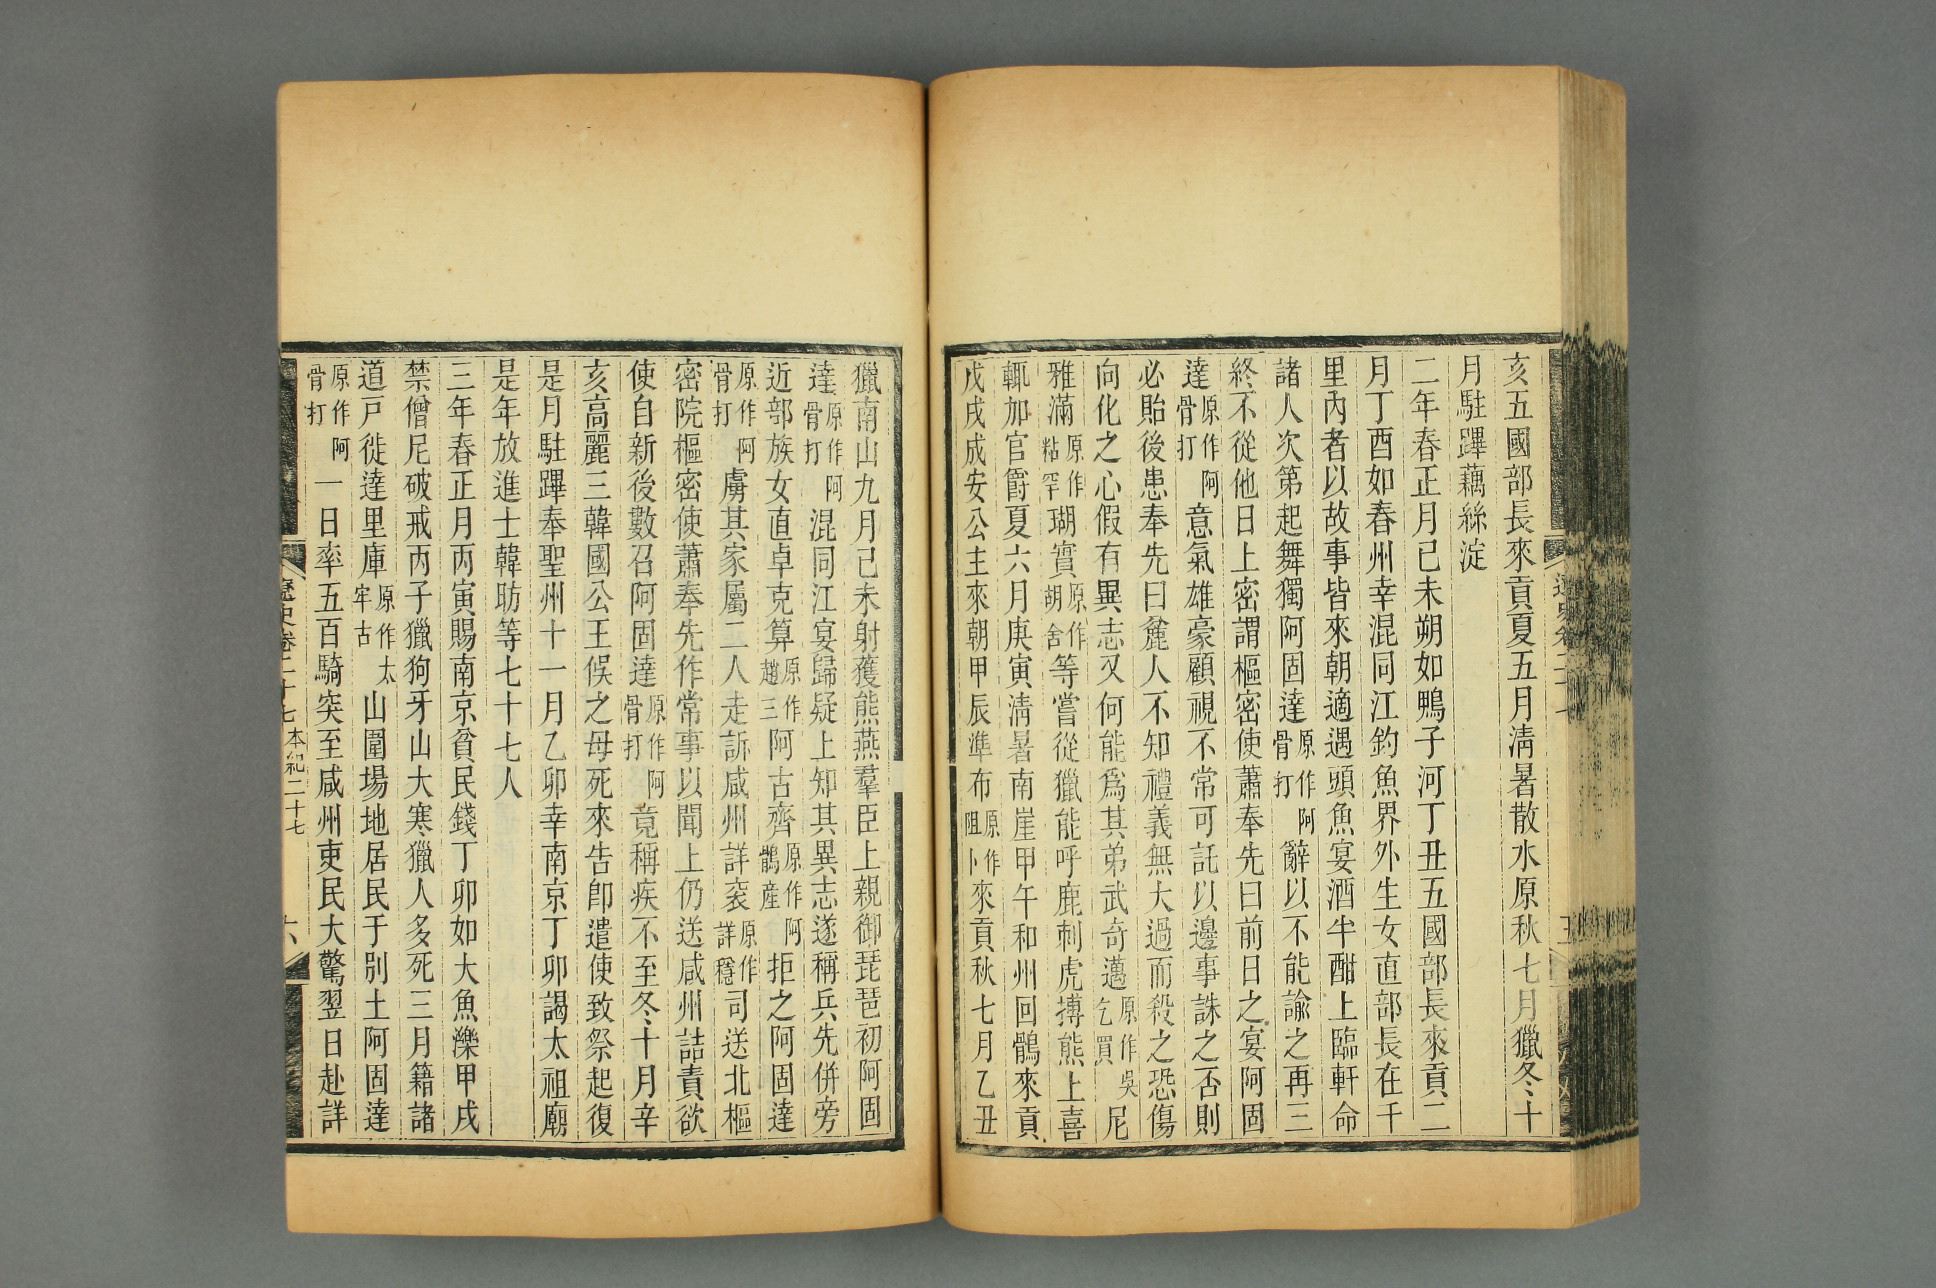 亥五國部長來貢夏五月清暑散水原秋七月獵冬十
月駐蹕藕絲淀
二年春正月己未朔如鴨子河丁丑五國部長來貢二
月丁酉如春州幸混同江釣魚界外生女直部長在千
里內者以故事皆來朝適遇頭魚宴酒半酣上臨軒命
諸人次第起舞獨阿固達原作阿骨打辭以不能諭之再三
終不從他日上密謂樞密使蕭奉先曰前日之宴阿固
達原作阿骨打意氣雄豪顧視不常可託以邊事誅之否則
必貽後患奉先曰麄人不知禮義無大過而殺之恐傷
向化之心假有異志又何能爲其弟武奇邁原作吳乞買尼
雅滿原作粘罕瑚實原作胡舍等嘗從獵能呼鹿刺虎搏熊上喜
輒加官爵夏六月庚寅清暑南崖甲午和州回鶻來貢
戊戌成安公主來朝甲辰準布原作阻卜來貢秋七月乙丑
獵南山九月己未射獲熊燕羣臣上親御琵琶初阿固
達原作阿骨打混同江宴歸疑上知其異志遂稱兵先併旁
近部族女直卓克算原作趙三阿古齊原作阿鶻產拒之阿固達
原作阿骨打虜其家屬二人走訴咸州詳衮原作詳穩司送北樞
密院樞密使蕭奉先作常事以聞上仍送咸州詰責欲
使自新後數召阿固達原作阿骨打竟稱疾不至冬十月辛
亥高麗三韓國公王俁之母死來告卽遣使致祭起復
是月駐蹕奉聖州十一月乙卯幸南京丁卯謁太祖廟
是年放進士韓昉等七十七人
三年春正月丙寅賜南京貧民錢丁卯如大魚濼甲戌
禁僧尼破戒丙子獵狗牙山大寒獵人多死三月籍諸
道戸徙達里庫原作太牢古山圍場地居民于別土阿固達
原作阿骨打一日率五百騎突至咸州吏民大驚翌日赴詳
遼史卷二十七 本紀二十七 六